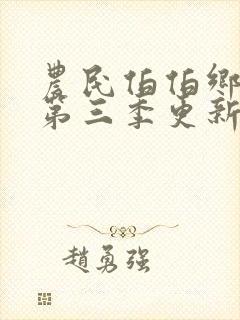 農民伯伯鄉
第三季更新
趙勇強